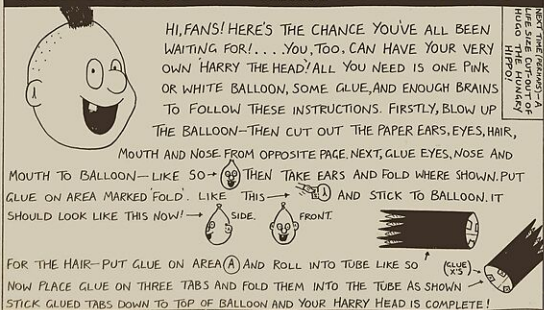 HI, FANS! HERE'S THE CHANCE YOU'VE ALL BEEN
WAITING FOR!....YOU, TOO, CAN HAVE YOUR VERY
OWN 'HARRY THE HEAD'! ALL YOU NEED IS ONE PINK
OR WHITE BALLOON, SOME GLUE, AND ENOUGH BRAINS
TO FOLLOW THESE INSTRUCTIONS. FIRSTLY, BLOW UP
THE BALLOON—THEN CUT OUT THE PAPER EARS, EYES, HAIR,
MOUTH AND NOSE FROM OPPOSITE PAGE. NEXT, GLUE EYES, NOSE AND
MOUTH TO BALLOON—LIKE SO THEN TAKE EARS AND FOLD WHERE SHOWN. PUT
GLUE ON AREA MARKED 'FOLD'. LIKE THIS— A AND STICK TO BALLOON. IT
SHOULD LOOK LIKE THIS NOW!— SIDE. FRONT.
FOR THE HAIR—PUT GLUE ON AREA A AND ROLL INTO TUBE LIKE SO
(GLUE X'S)
NOW PLACE GLUE ON THREE TABS AND FOLD THEM INTO THE TUBE AS SHOWN
STICK GLUED TABS DOWN TO TOP OF BALLOON AND YOUR HARRY HEAD IS COMPLETE!
NEXT TIME (PERHAPS)—A
LIFE SIZE CUT-OUT OF
HUGO THE HUNGRY
HIPPO!